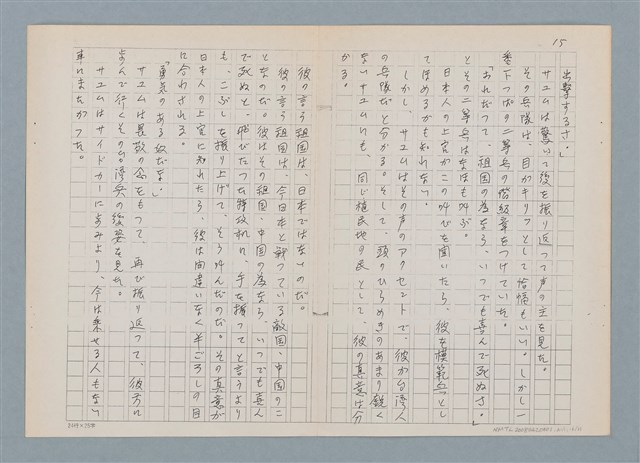 15
出撃するさ。」
サユムは驚いて後を振り返つて声の主を見た。
その兵隊は、目がキリつとして恰幅もいい。しかし一
番下つぱの二等兵の階級章をつけていた。
「おれだつて、祖国の為なら、いつでも喜んで死ぬさ。」
とその二等兵はなおも叫ぶ。
日本人の上官がこの叫びを聞いたら、彼を模範兵とし
てほめるかも知れない。
しかし、サユムはその声のアクセントで、彼が台湾人
の兵隊と分かる。そして、頭のひらめきのあまり鋭く
ないサユムにも、同じ植民地の民として、彼の真意は分
かる。
彼の言う祖国は、日本ではないのだ。
彼の言う祖国は、今日本と戦つている敵国、中国のこ
となのだ。彼はその祖国、中国の為なら、いつでも喜ん
で死ぬと、飛びたつた特攻機に、手を振つてと言うより
も、こぶしを振り上げて、そう叫んだのだ。その真意が
日本人の上官に知れたら、彼は間違いなく半ごろしの目
に合わされる。
「勇気のある奴だなあ」
サユムは畏敬の念をもつて、再び振り返つて、彼方に
歩んで行くその台湾兵の後姿を見た。
サユムはサイドカーに歩みより、今は乗せる人もない
車にまたがつた。